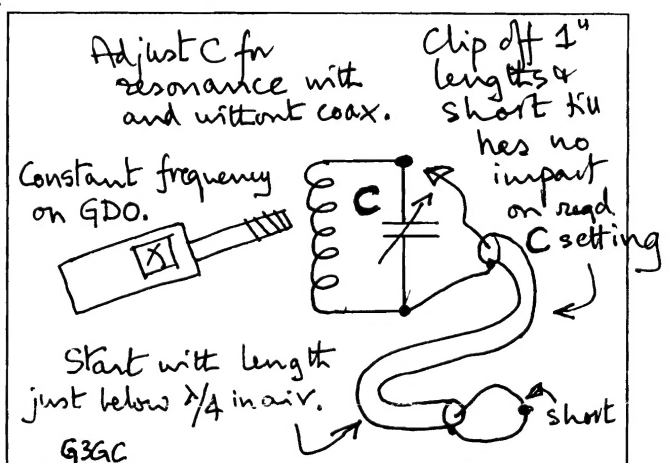 Adjust C for
resonance with
and without coax.
Clip off 1"
lengths &
short till
has no
impact
on reqd
C setting
Constant frequency
on GDO.
C
Start with length
just below λ/4 in air.
short
G3GC